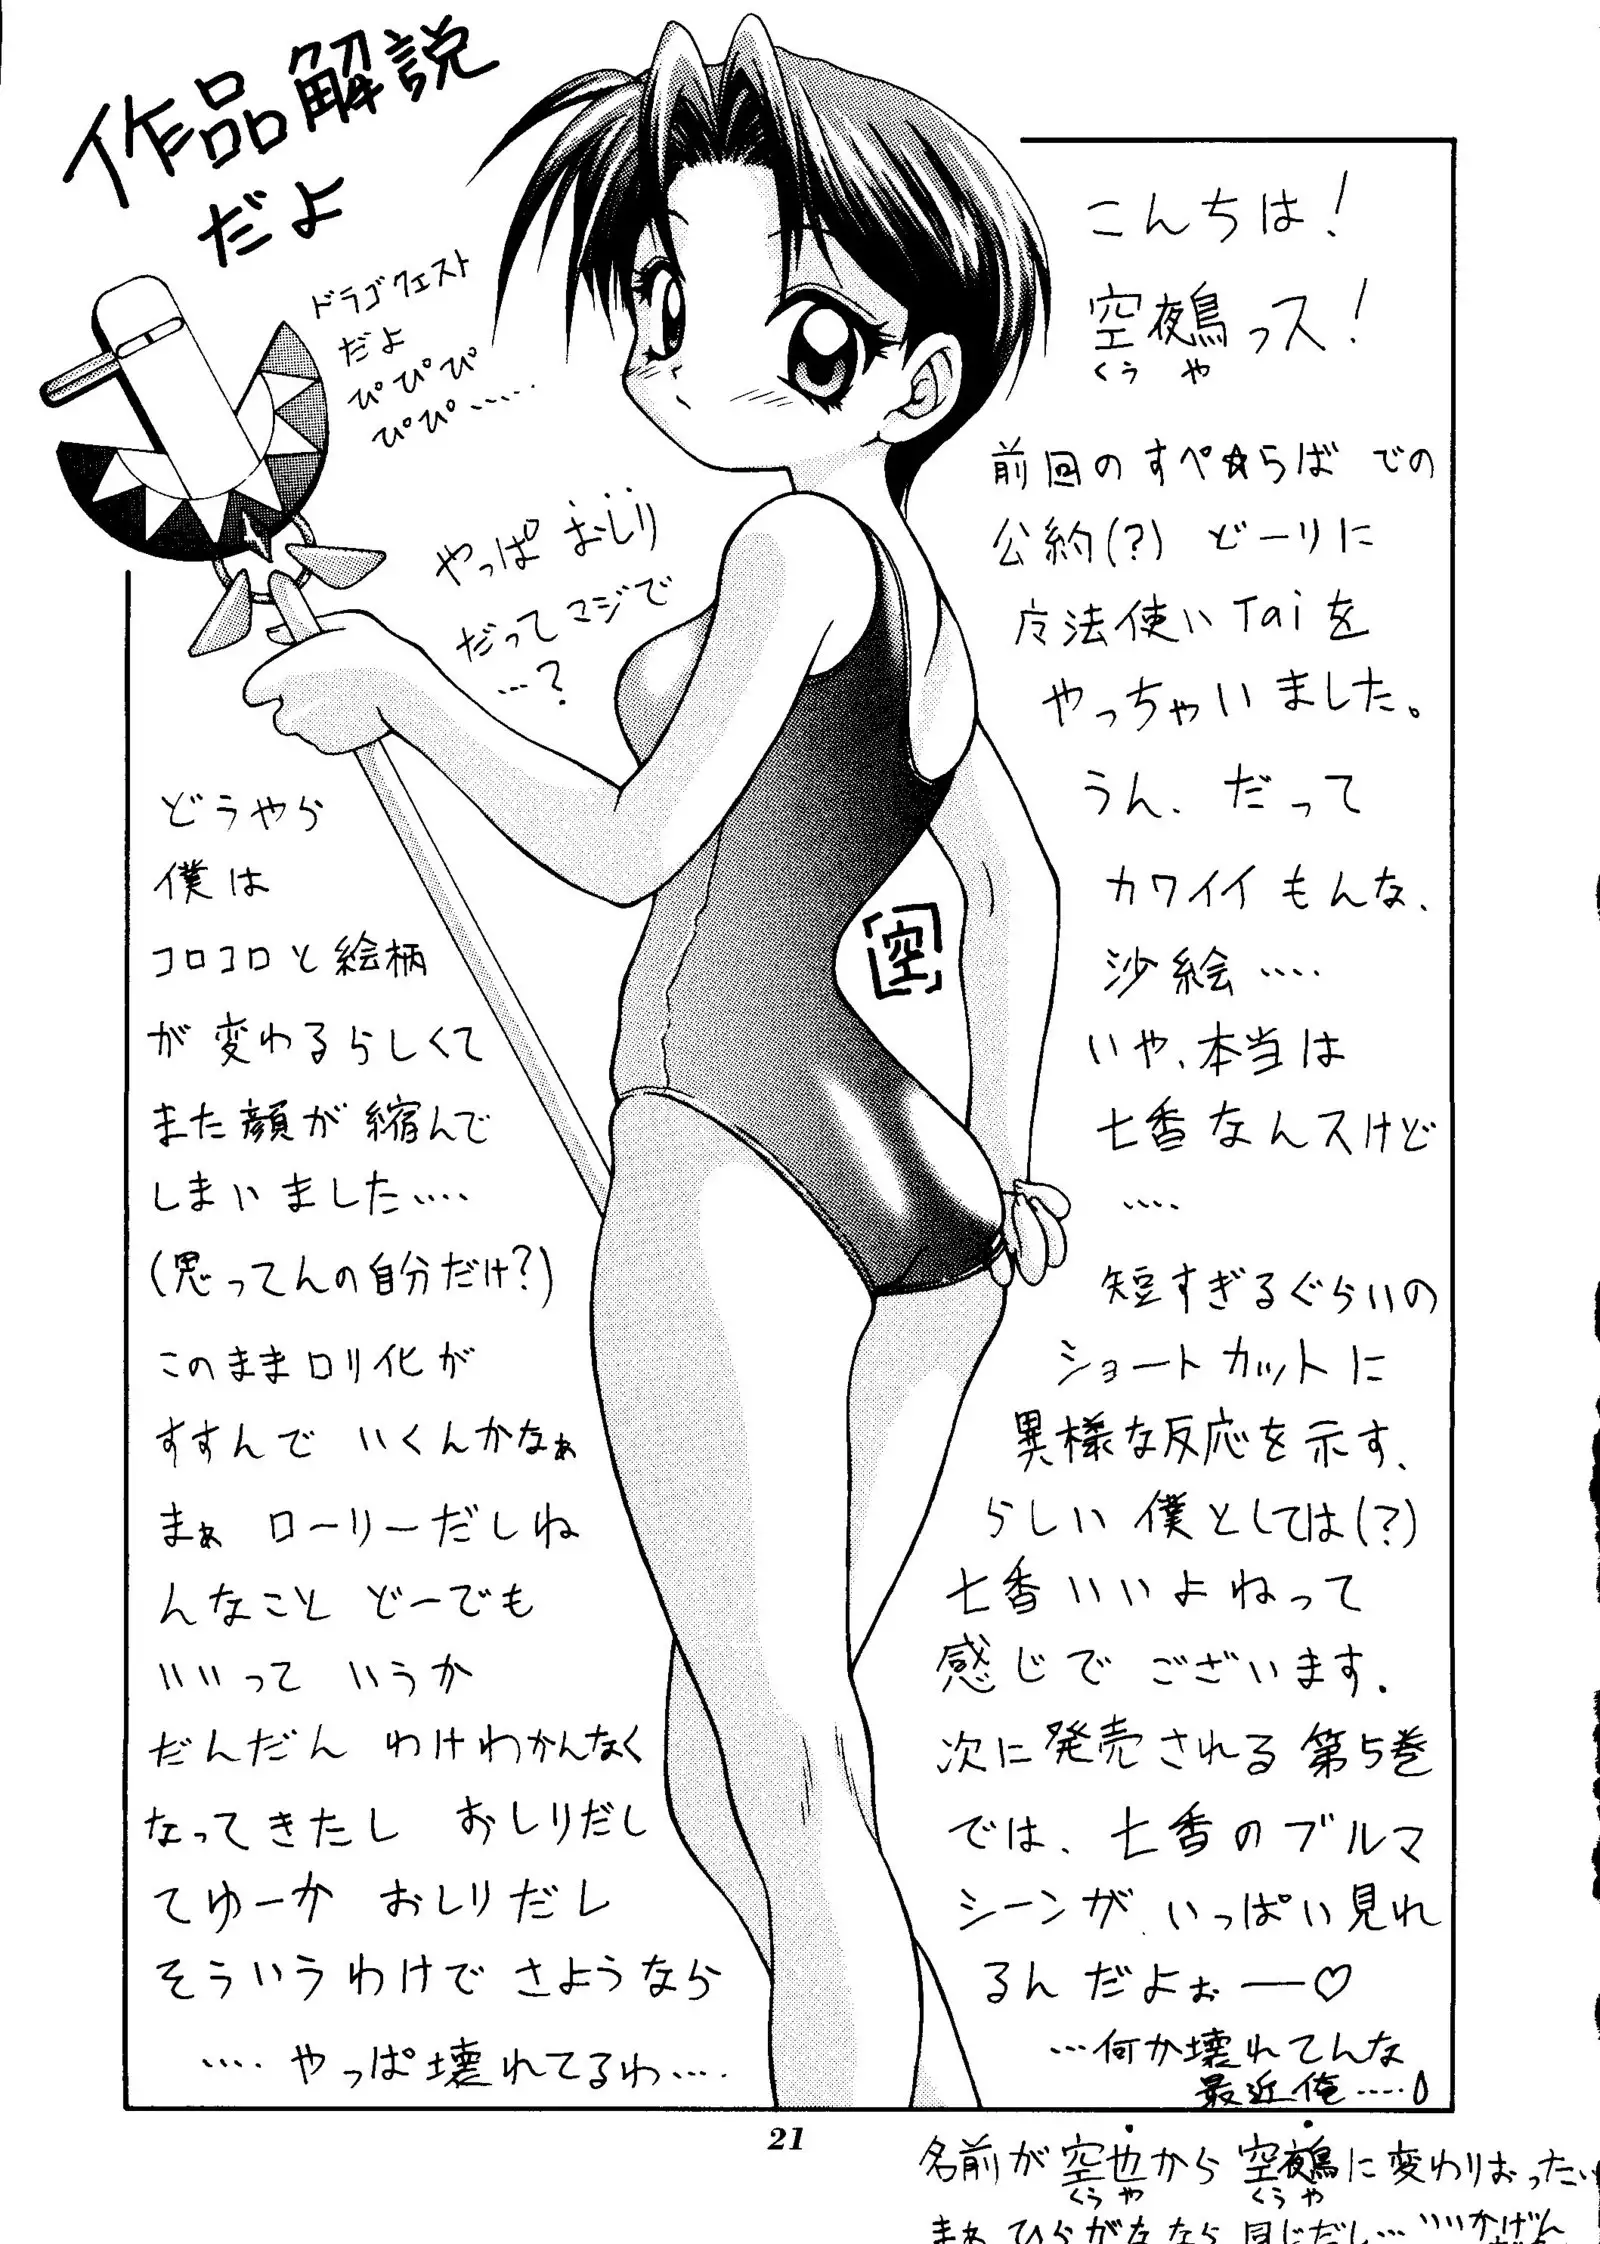 作品解説
だよ
ドラゴクエスト
だよ
ぴぴぴ
ぴぴ・・・・・
やっぱ おしり
だってマジで
…?
こんちは!
空夜鳥っス!
くう や
前回のすぺ☆らば での
公約(?) どーりに
魔法使いTaiを
やっちゃいました。
うん、だって
カワイイもんな、
沙絵・・・・
いや、本当は
七香なんスけど
・・・・
短すぎるぐらいの
ショートカットに
異様な反応を示す、
らしい 僕としては(?)
七香いいよねって
感じで ございます.
次に発売される 第5巻
では、七香のブルマ
シーンが いっぱい見れ
るんだよぉー♡
…何か壊れてんな
最近俺・・・・
空
どうやら
僕は
コロコロと絵柄
が変わるらしくて
また顔が縮んで
しまいました・・・・
(思ってんの自分だけ?)
このままロリ化が
すすんで いくんかなぁ
まぁ ローリーだしね
んなこと どーでも
いいって いうか
だんだん わけわかんなく
なってきたし おしりだし
てゆーか おしりだし
そういうわけで さようなら
・・・・やっぱ壊れてるわ・・・・
21
名前が空也から空夜鳥に変わりおったい
くう や くう や
まぁ ひらがななら 同じだし… いいかげん